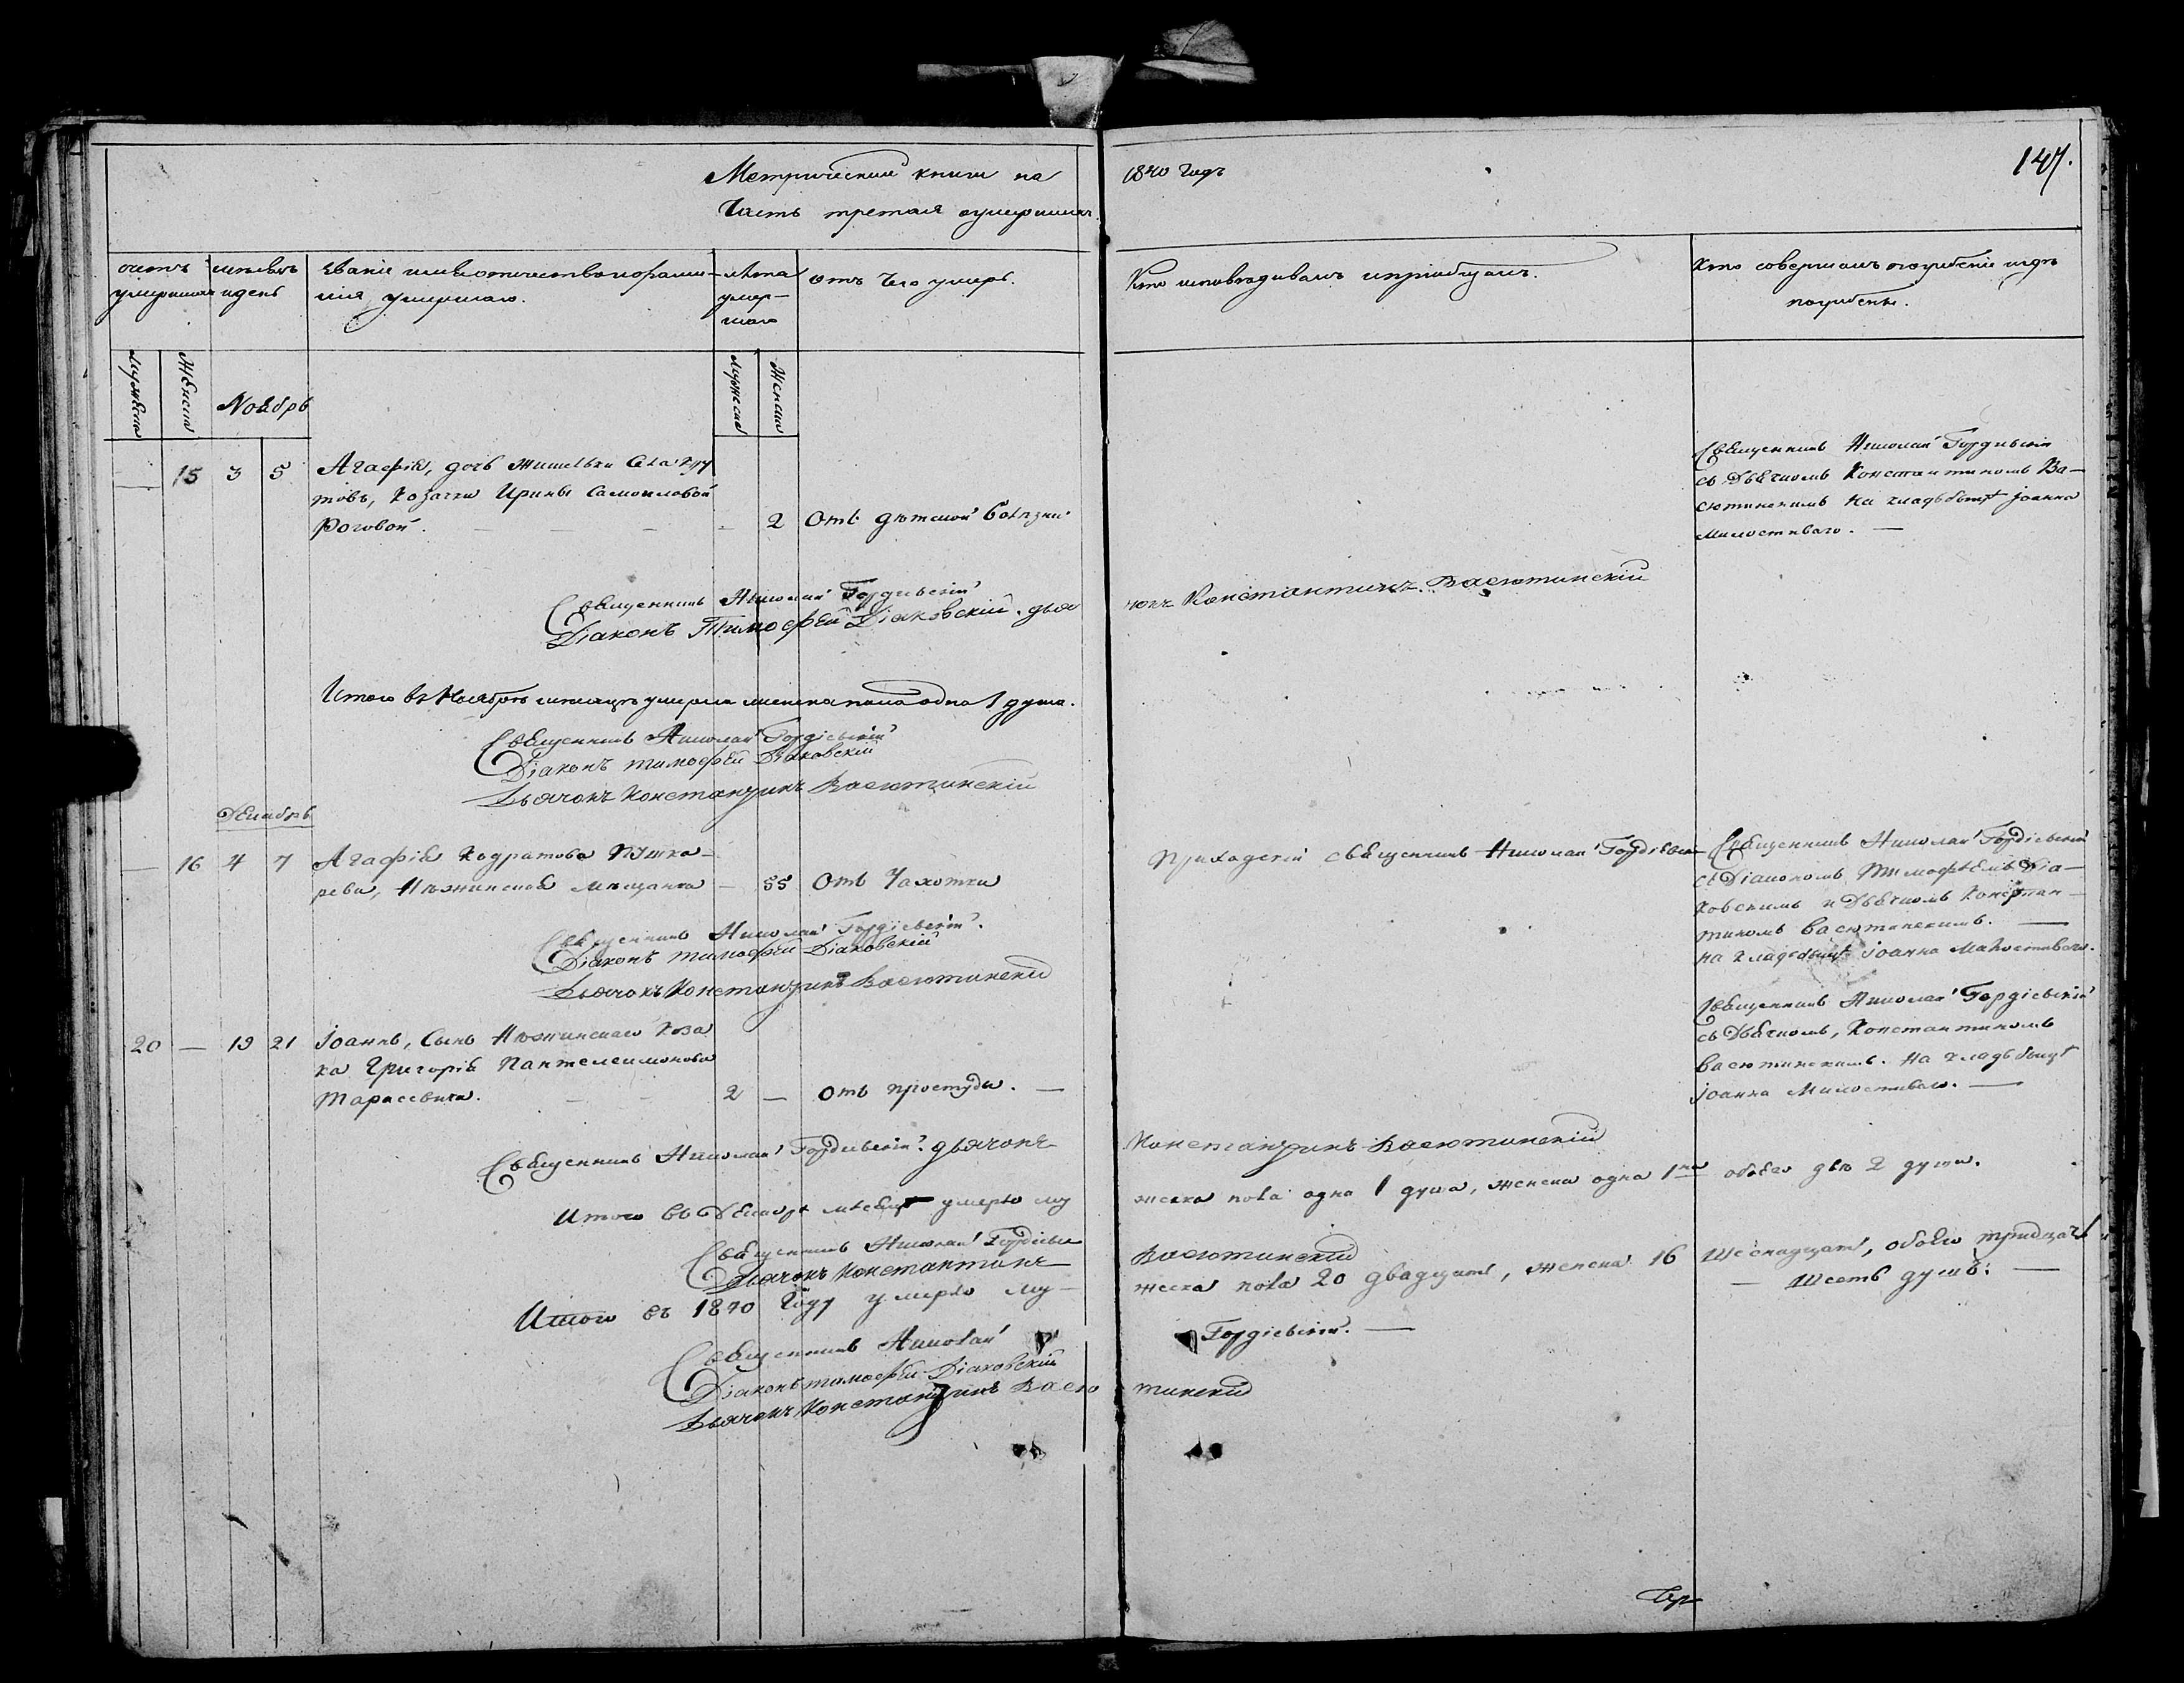 Метрической книги на 1840 годъ
147.
Часть третая оумершихъ.
счетъ умершихъ
мѣсяцъ и день
званіе имя отчество и фамилия умершаго.
лѣта умершаго
отъ чего умеръ.
Кто исповѣдывалъ и пріобщалъ.
Кто совершалъ погребеніе и гдѣ погребены.
Мужеска
Женска
Ноябрь
Мужеска
Женска
— 15 3 5
Агафія, дочь жителки села
товъ, козачки Ирины Самоиловой
Роговой. — — — - 2 Отъ дѣтской болѣзни
Священникъ Николай Гордіевскій
съ Дьячкомъ Константиномъ Ва-
сютинскимъ на кладьбыщѣ Іоанна
Милостиваго. —
Священникъ Николай Гордіевскій
Діаконъ Тимофей Діаковскій. дья
чокъ Константинъ Васютинскій
Итого въ Ноябрѣ мѣсяцѣ умерла женска пола одна 1 душа.
Священникъ Николай Гордіевскій
Діаконъ Тимофей Діаковскій
Дьячокъ Константинъ Васютинскій
Декабрь
— 16 4 7 Агафія Кодратова Пушка-
рева, Нѣжинская мѣщанка — 55 Отъ Чахотки
Приходскій священникъ Николай Гордіевск
Священникъ Николай Гордіевскій
съ Діакономъ Тимофѣемъ Діа-
ковскимъ и Дьячкомъ Констан-
тиномъ Васютинскимъ. —
на кладбыщѣ Іоанна Милостиваго.
Священникъ Николай Гордіевскій.
Діаконъ Тимофей Діаковскій
Дьячокъ Константинъ Васютинскій
20 — 19 21 Іоаннъ, Сынъ Нѣжинскаго Коза
ка Григорія Пантелеимонова
Тарасевича. — — 2 — Отъ простуды. —
Священникъ Николай Гордіевскій
съ Дьячкомъ, Константиномъ
Васютинскимъ. На кладьбыщѣ
Іоанна Милостиваго. —
Священникъ Николай Гордіевскій. дьячокъ
Константинъ Васютинскій
Итого въ Декабрѣ мѣсяцѣ умерло му
жеска пола одна 1 душа, женска одна 1на обоего двѣ 2 душы.
Священникъ Николай Гордіевск
Дьячокъ Константинъ
Васютинскій
Итого въ 1840 Году умерло му-
жеска пола 20 двадцать, женска 16 Шеснадцать, обоего тридцать
— Шесть душъ. —
Священникъ Николай
Гордіевскій. —
Діаконъ Тимофей Діаковскій
Дьячокъ Константинъ Васю
тинскій